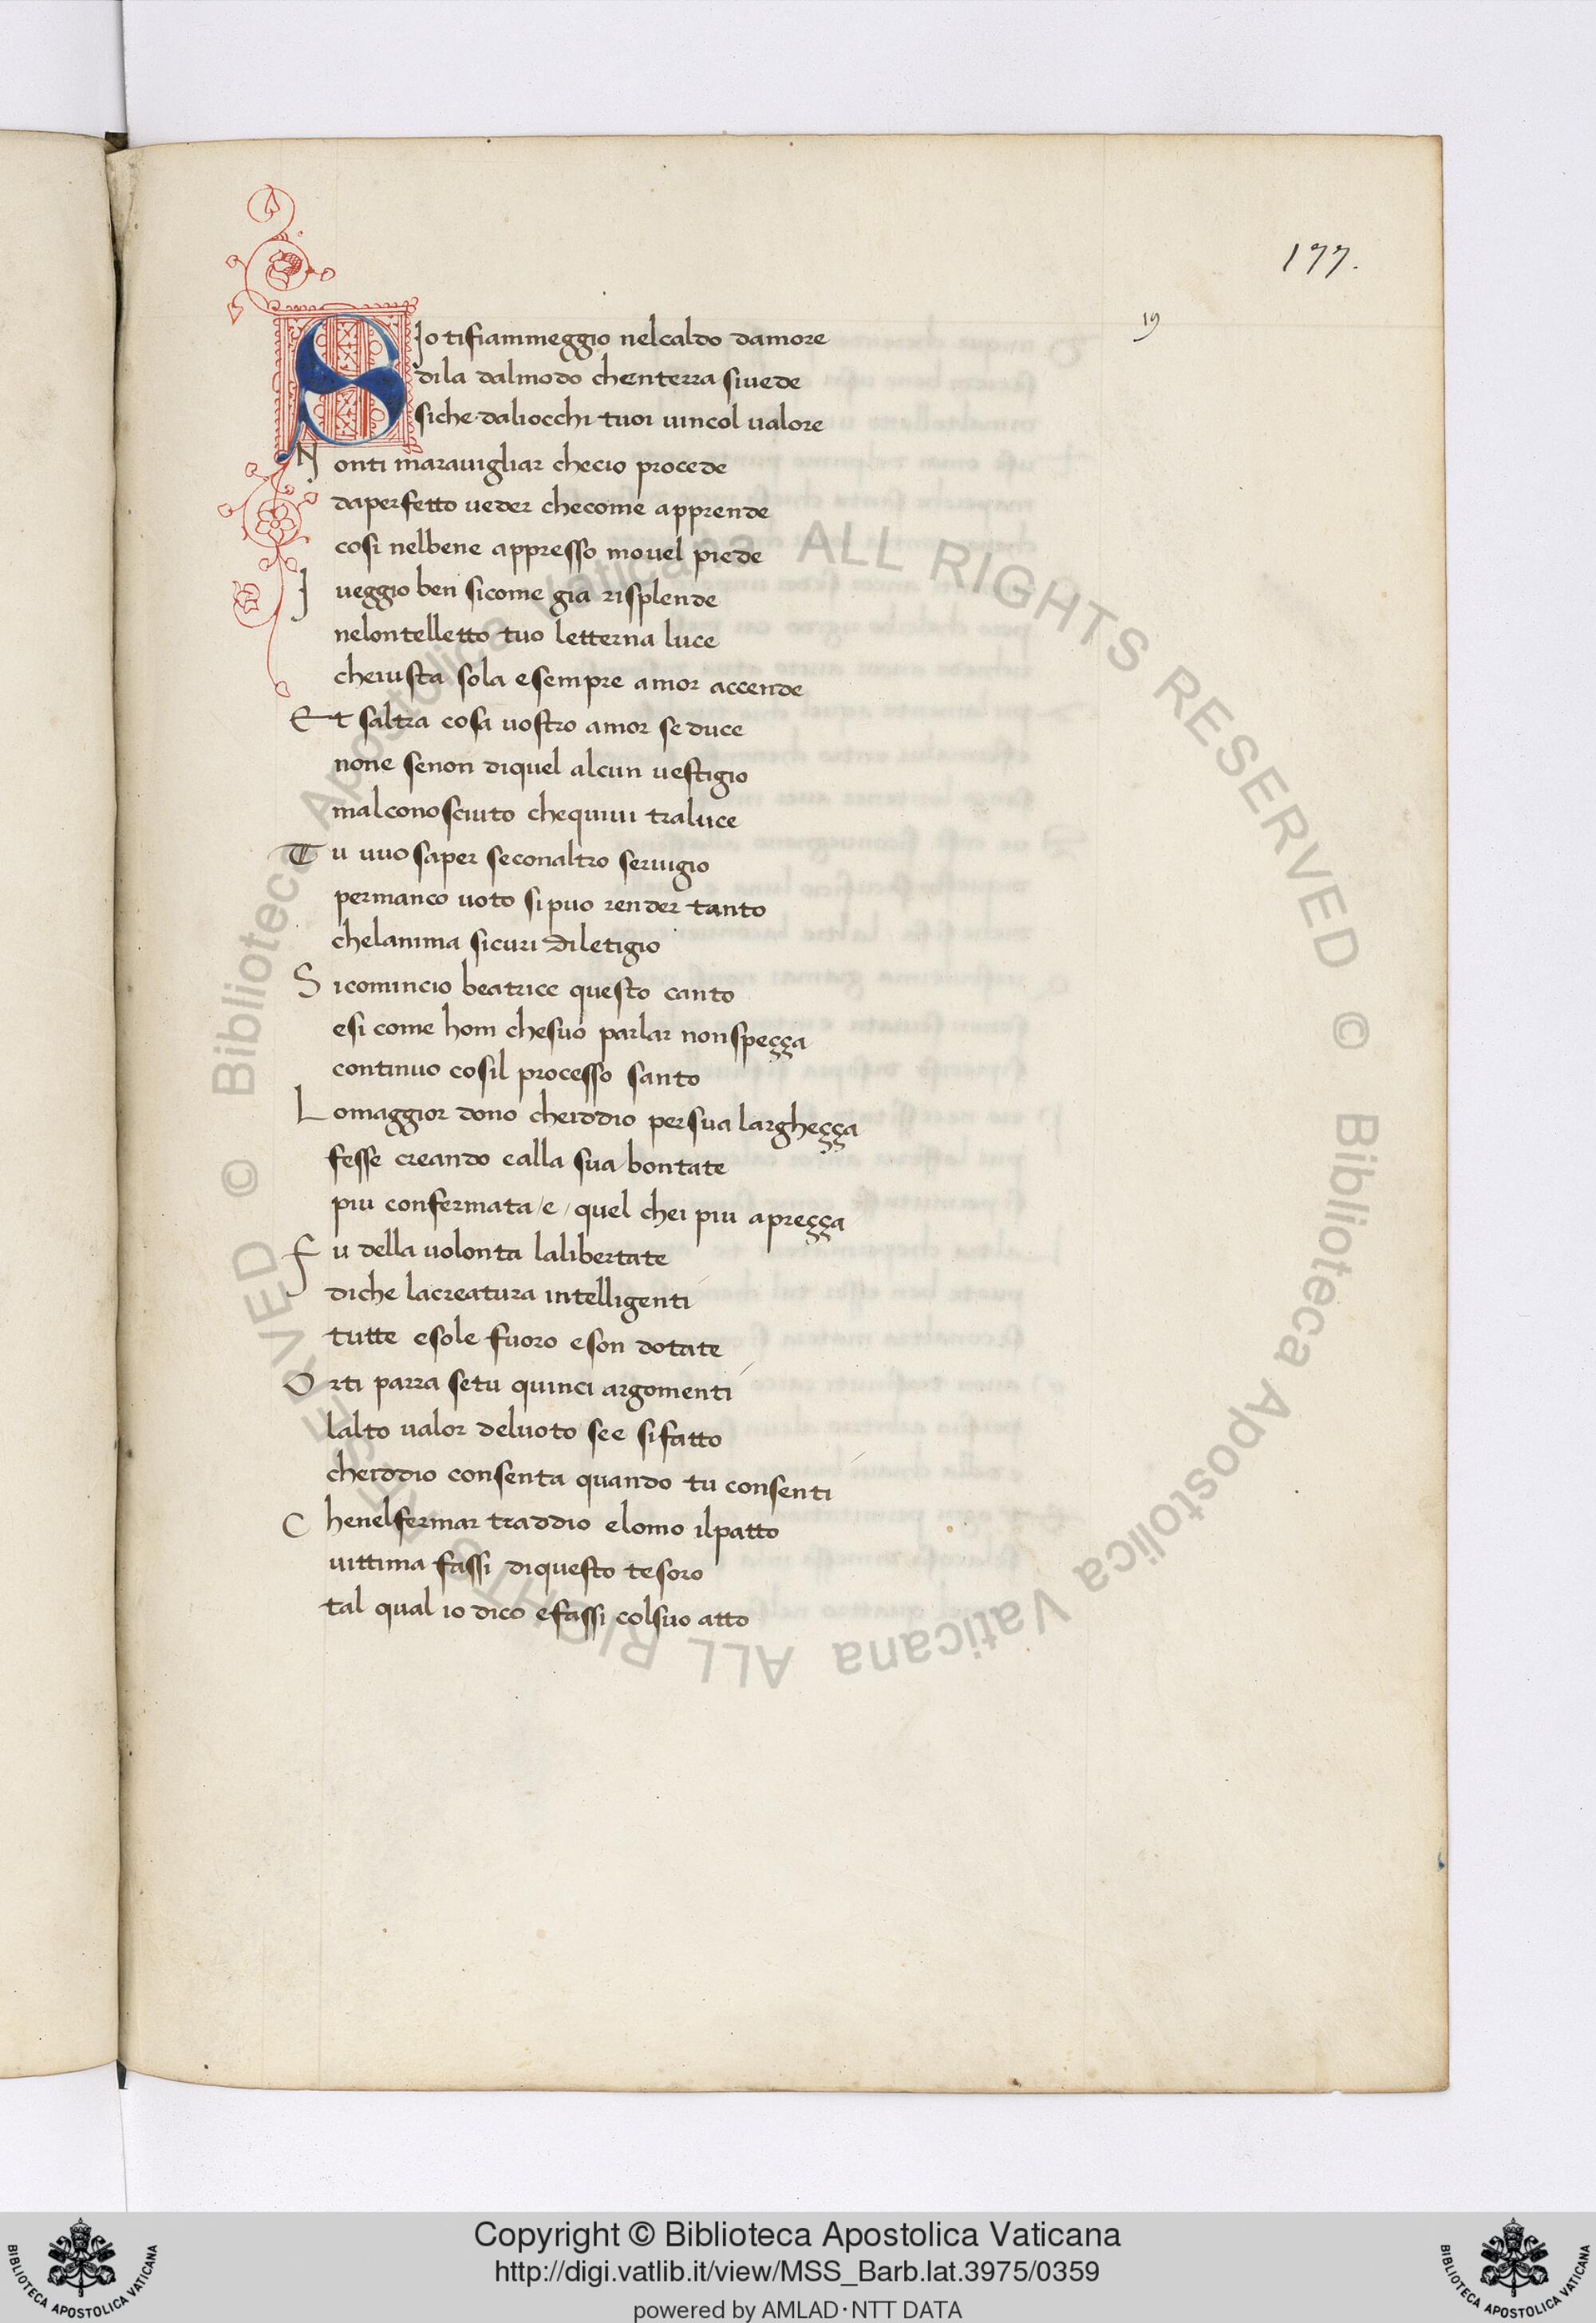 177.
19
SJo tifiammeggio nelcaldo damore
dila dalmodo chenterra siuede
siche daliocchi tuoi uincol ualore
Nonti marauigliar checio procede
daperfetto ueder checome apprende
cosi nelbene appresso mouel piede
J ueggio ben sicome gia risplende
nelontelletto tuo letterna luce
cheuista sola esempre amor accende
Et saltra cosa uostro amor seduce
none senon diquel alcun uestigio
malconosciuto chequiui traluce
Tu uuo saper seconaltro seruigio
permanco uoto sipuo render tanto
chelanima sicuri diletigio
Sicomincio beatrice questo canto
esi come hom chesuo parlar nonspeçça
continuo cosil processo santo
Lomaggior dono cheiddio persua largheçça
fesse creando ealla sua bontate
piu confermata / e / quel chei piu apreçça
Fu della uolonta lalibertate
diche lacreatura intelligenti
tutte esole fuoro eson dotate
Orti parra setu quinci argomenti
lalto ualor deluoto see sifatto
cheiddio consenta quando tu consenti
Chenelfermar traddio elomo ilpatto
uittima fassi diquesto tesoro
tal qual io dico efassi colsuo atto
© Biblioteca Apostolica Vaticana ALL RIGHTS RESERVED © Biblioteca Apostolica Vaticana ALL RIGHTS RESERVED
BIBLIOTECA APOSTOLICA VATICANA
Copyright © Biblioteca Apostolica Vaticana
http://digi.vatlib.it/view/MSS_Barb.lat.3975/0359
powered by AMLAD·NTT DATA
BIBLIOTECA APOSTOLICA VATICANA